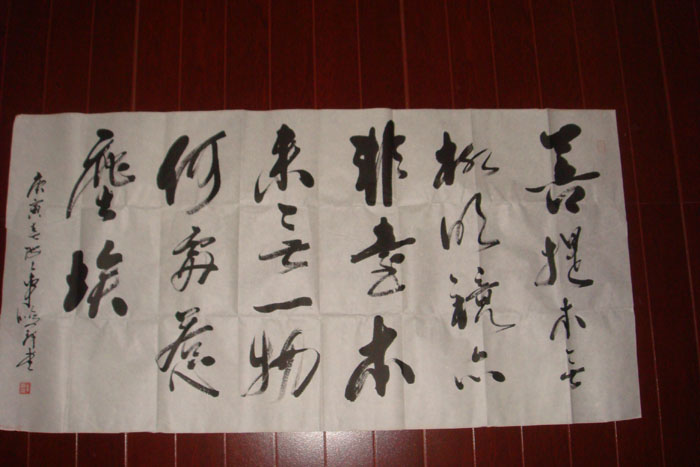 菩提本无
树明镜亦
非臺本
来无一物
何處惹
塵埃
庚寅